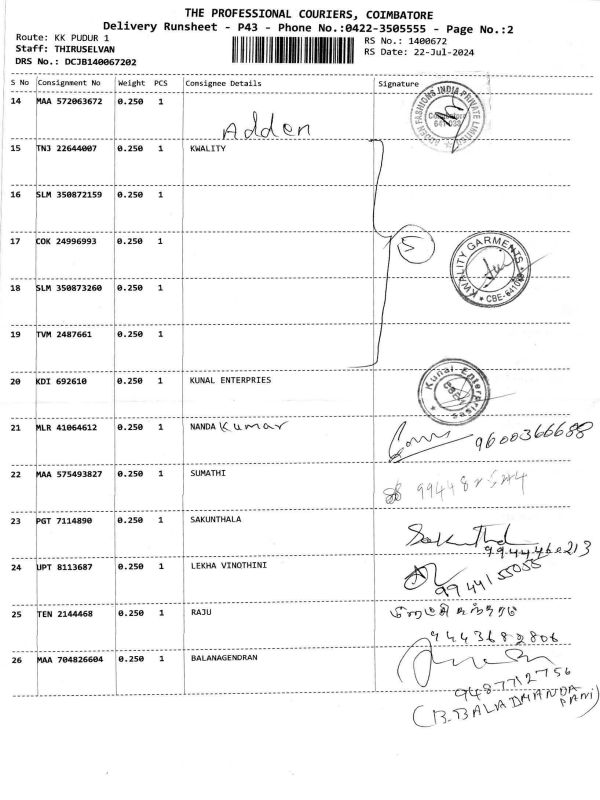 THE PROFESSIONAL COURIERS, COIMBATORE
Delivery Runsheet - P43 - Phone No.:0422-3505555 - Page No.:2
Route: KK PUDUR 1
RS No.: 1400672
Staff: THIRUSELVAN
RS Date: 22-Jul-2024
DRS No.: DCJB140067202
S No Consignment No Weight PCS Consignee Details Signature
14 MAA 572063672 0.250 1
Adden
ADDEN FASHIONS INDIA PRIVATE LIMITED
Coimbatore
15 TNJ 22644007 0.250 1 KWALITY
16 SLM 350872159 0.250 1
17 COK 24996993 0.250 1
5
KWALITY GARMENTS
* CBE-641038 *
18 SLM 350873260 0.250 1
19 TVM 2487661 0.250 1
20 KDI 692610 0.250 1 KUNAL ENTERPRIES
Kunal Enterprises
21 MLR 41064612 0.250 1 NANDA Kumar
9600366688
22 MAA 575493827 0.250 1 SUMATHI
23 PGT 7114890 0.250 1 SAKUNTHALA
Sakunthl
24 UPT 8113687 0.250 1 LEKHA VINOTHINI
9944155055
25 TEN 2144468 0.250 1 RAJU
9443682806
26 MAA 704826604 0.250 1 BALANAGENDRAN
9487712756
(B.BALA DHANDA PANI)